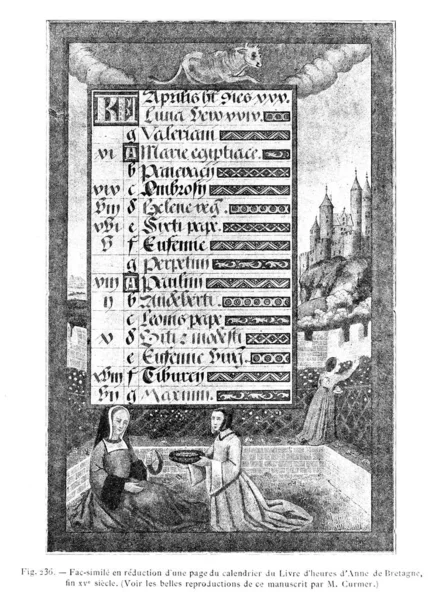 KL Aprilis ht dies xxx.
Luna vero xxix
g Valeriani
xi A Marie egiptiace
b Pancracij
xix c Ambrosij
viij d Helene reg
xvi e Sixti pape
v f Eufemie
g Perpetui
xiij A Paulini
ij b
c Leonis pape
x d Viti z modesti
e Eufemie virg
xviij f Tiburcij
vij g Maximi
Fig. 236. — Fac-similé en réduction d'une page du calendrier du Livre d'heures d'Anne de Bretagne,
fin XVe siècle. (Voir les belles reproductions de ce manuscrit par M. Curmer.)